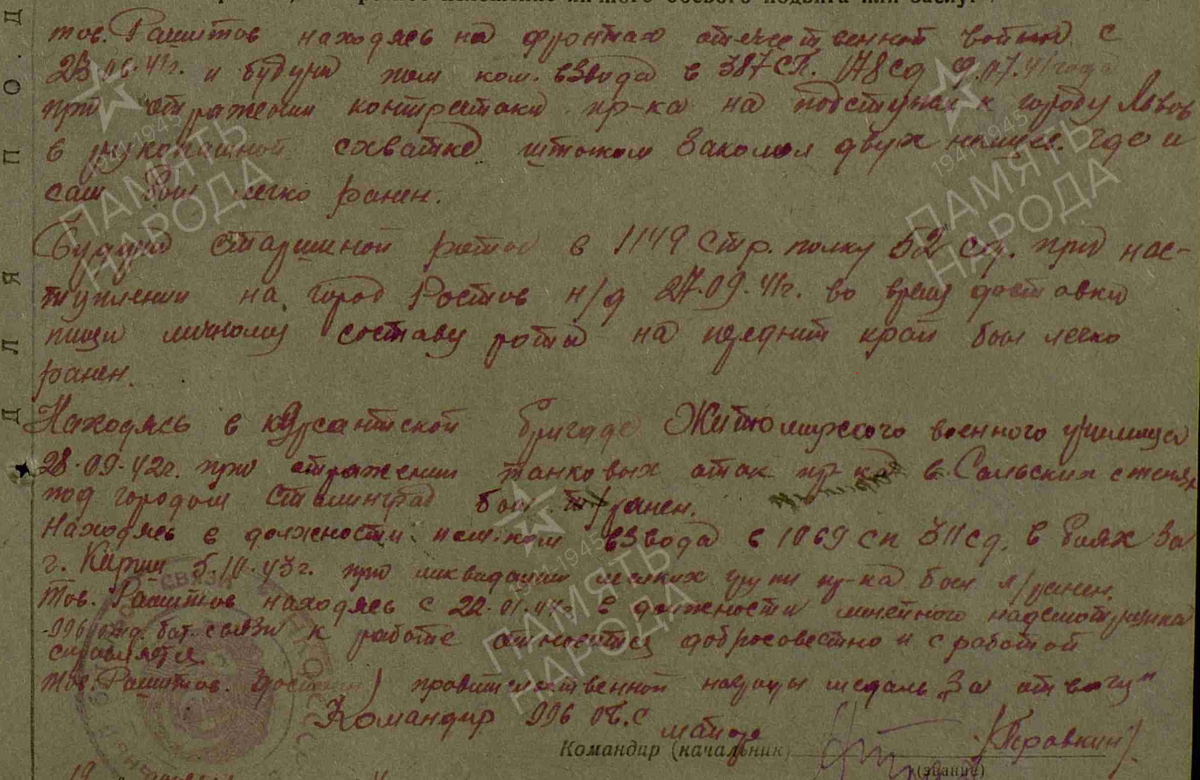 тов. Рашитов находясь на фронтах отечественной войны с
23.06.41г. и будучи пом ком. взвода в 387 СП. 178 сд 9.07.41 года
при отражении контратаки пр-ка на подступах к городу Львов
в рукопашной схватке штыком заколол двух немцев. где и
сам был легко ранен.
Будучи старшиной роты в 1149 стр. полку 52 сд. при нас-
туплении на город Ростов н/д 27.09.41г. во время доставки
пищи личному составу роты на передний край был легко
ранен.
Находясь в курсантской бригаде Житомирского военного училища
28.09.42г. при отражении танковых атак пр-ка в Сальских степях
под городом Сталинград был т/ранен.
Находясь в должности пом. ком взвода в 1069 сп 311 сд. в боях за
г. 5.10.43г. при ликвидации мелких групп пр-ка был л/ранен.
Тов. Рашитов находясь с 22.01.44г в должности линейного надсмотрщика
996 отд. бат. связи к работе относится добросовестно и с работой
справляется.
тов. Рашитов. достоин правительственной награды медаль "За отвагу"
Командир 996 ОБ.С майор /Правкин/
Командир (начальник)
(звание)
Д Л Я П О Д
1941-1945
ПАМЯТЬ
НАРОДА
1941-1945
ПАМЯТЬ
НАРОДА
1941-1945
ПАМЯТЬ
НАРОДА
СВЯЗИ